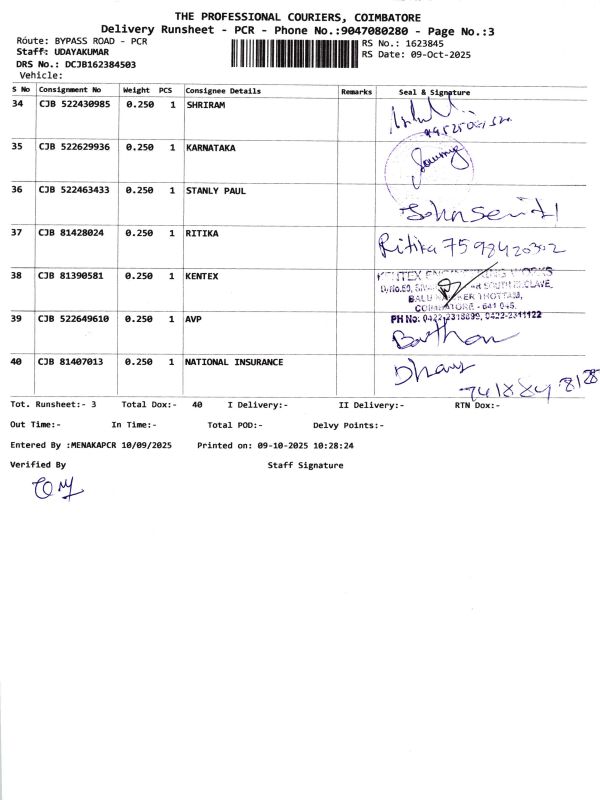 THE PROFESSIONAL COURIERS, COIMBATORE
Delivery Runsheet - PCR - Phone No.:9047080280 - Page No.:3
Route: BYPASS ROAD - PCR
RS No.: 1623845
Staff: UDAYAKUMAR
RS Date: 09-Oct-2025
DRS No.: DCJB162384503
Vehicle:
S No Consignment No Weight PCS Consignee Details Remarks Seal & Signature
34 CJB 522430985 0.250 1 SHRIRAM
35 CJB 522629936 0.250 1 KARNATAKA
36 CJB 522463433 0.250 1 STANLY PAUL
37 CJB 81428024 0.250 1 RITIKA
Ritika 7598420302
38 CJB 81390581 0.250 1 KENTEX
KENTEX ENGINEERING WORKS
SOUTH ENCLAVE,
THOTTAM,
COIMBATORE - 641 045.
39 CJB 522649610 0.250 1 AVP
PH No: 0422-2318899, 0422-2311122
40 CJB 81407013 0.250 1 NATIONAL INSURANCE
Tot. Runsheet:- 3 Total Dox:- 40 I Delivery:- II Delivery:- RTN Dox:-
Out Time:- In Time:- Total POD:- Delvy Points:-
Entered By :MENAKAPCR 10/09/2025 Printed on: 09-10-2025 10:28:24
Verified By Staff Signature